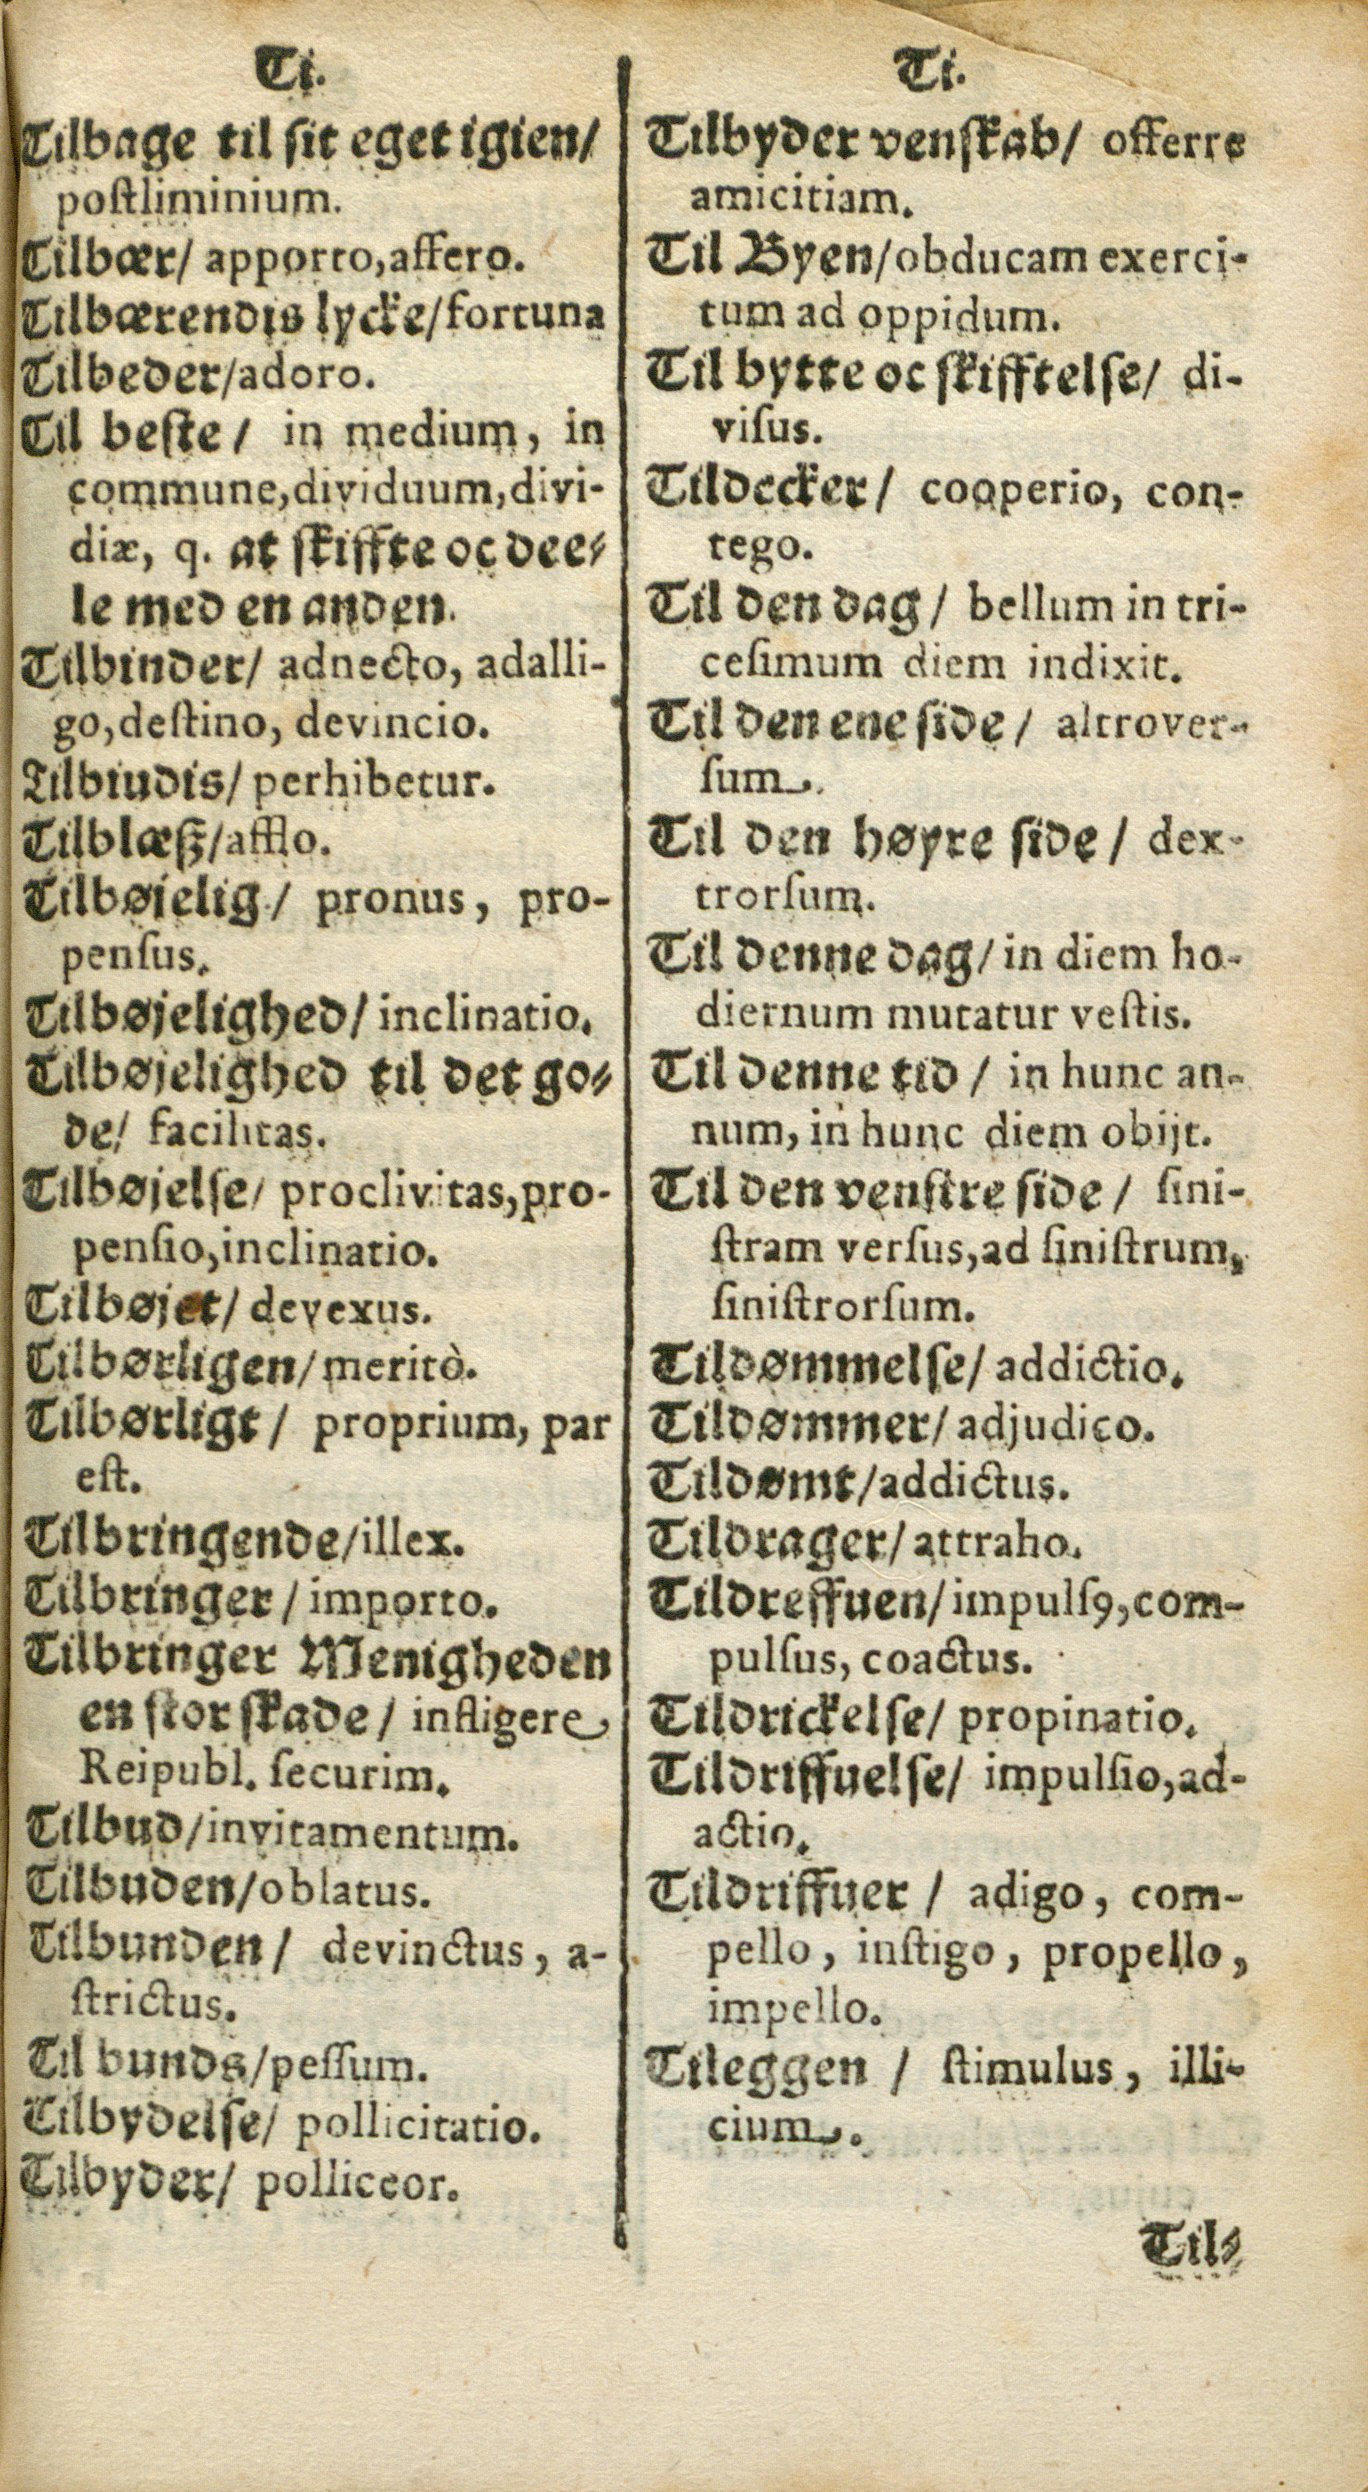 Ti.
Tilbage til ſit eget igien/
poſtliminium.
Tilbær/ apporto,affero.
Tilbærendis lycke/fortuna
Tilbeder/adoro.
Til beſte/ in medium, in
commune,dividuum,divi-
diæ, q. at ſkiffte oc dee-
le med en anden.
Tilbinder/ adnecto, adalli-
go,deſtino, devincio.
Tilbiudis/ perhibetur.
Tilblæß/afflo.
Tilbøjelig/ pronus, pro-
penſus.
Tilbøjelighed/ inclinatio.
Tilbøjelighed til det go-
de/ facilitas.
Tilbøjelſe/ proclivitas,pro-
penſio,inclinatio.
Tilbøjet/ devexus.
Tilbørligen/meritò.
Tilbørligt/ proprium, par
eſt.
Tilbringende/illex.
Tilbringer/importo.
Tilbringer Menigheden
en ſtor ſkade/ infligere
Reipubl. ſecurim.
Tilbud/invitamentum.
Tilbuden/oblatus.
Tilbunden/ devinctus, a-
ſtrictus.
Til bunds/peſſum.
Tilbydelſe/ pollicitatio.
Tilbyder/ polliceor.
Ti.
Tilbyder venſkab/ offerre
amicitiam.
Til Byen/obducam exerci-
tum ad oppidum.
Til bytte oc ſkifftelſe/ di-
viſus.
Tildecker/ cooperio, con-
tego.
Til den dag/ bellum in tri-
ceſimum diem indixit.
Til den ene ſide/ altrover-
ſum.
Til den høyre ſide/ dex-
trorſum.
Til denne dag/in diem ho-
diernum mutatur veſtis.
Til denne tid/ in hunc an-
num, in hunc diem obijt.
Til den venſtre ſide/ ſini-
ſtram verſus,ad ſiniſtrum,
ſiniſtrorſum.
Tildømmelſe/addictio.
Tildømmer/adjudico.
Tildømt/addictus.
Tildrager/attraho.
Tildreffuen/impulſꝰ,com-
pulſus, coactus.
Tildrickelſe/ propinatio.
Tildriffuelſe/ impulſio,ad-
actio.
Tildriffuer/ adigo, com-
pello, inſtigo, propello,
impello.
Tileggen/ ſtimulus, illi-
cium.
Til-